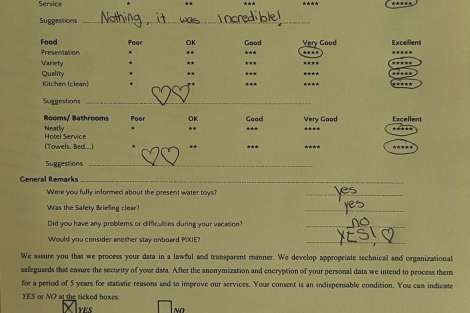 Service * ** *** **** *****
Suggestions Nothing, it was incredible!
Food Poor OK Good Very Good Excellent
Presentation * ** *** **** *****
Variety * ** *** **** *****
Quality * ** *** **** *****
Kitchen (clean) * ** *** **** *****
Suggestions ♡♡
Rooms/ Bathrooms Poor OK Good Very Good Excellent
Neatly * ** *** **** *****
Hotel Service
(Towels, Bed...) * ** *** **** *****
Suggestions ♡♡
General Remarks
Were you fully informed about the present water toys? yes
Was the Safety Briefing clear? yes
Did you have any problems or difficulties during your vacation? no
Would you consider another stay onboard PIXIE? YES! ♡
We assure you that we process your data in a lawful and transparent manner. We develop appropriate technical and organizational
safeguards that ensure the security of your data. After the anonymization and encryption of your personal data we intend to process them
for a period of 5 years for statistic reasons and to improve our services. Your consent is an indispensable condition. You can indicate
YES or NO at the ticked boxes:
☒ YES ☐ NO